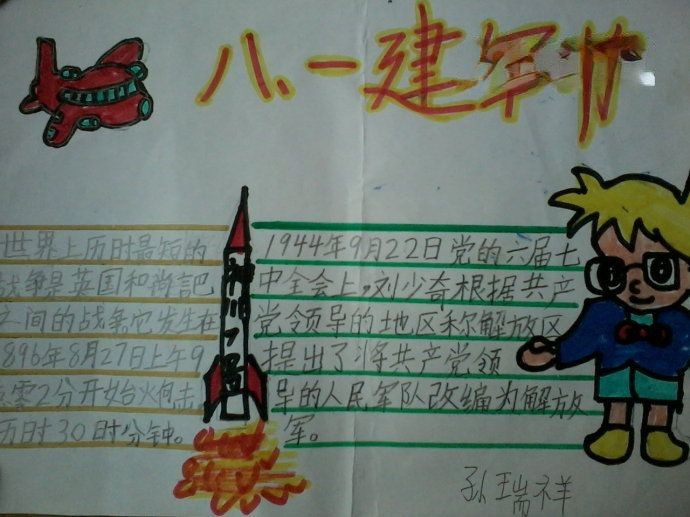 八、一建军节
世界上历时最短的
战争是英国和尚言巴
之间的战争它发生在
896年8月27日上午9
点零2分开始火何击
历时30时分钟。
神州7号
1944年9月22日党的六届七
中全会上,刘少奇根据共产
党领导的地区称解放区
提出了将共产党领
导的人民军队改编为解放
军。
孙瑞祥